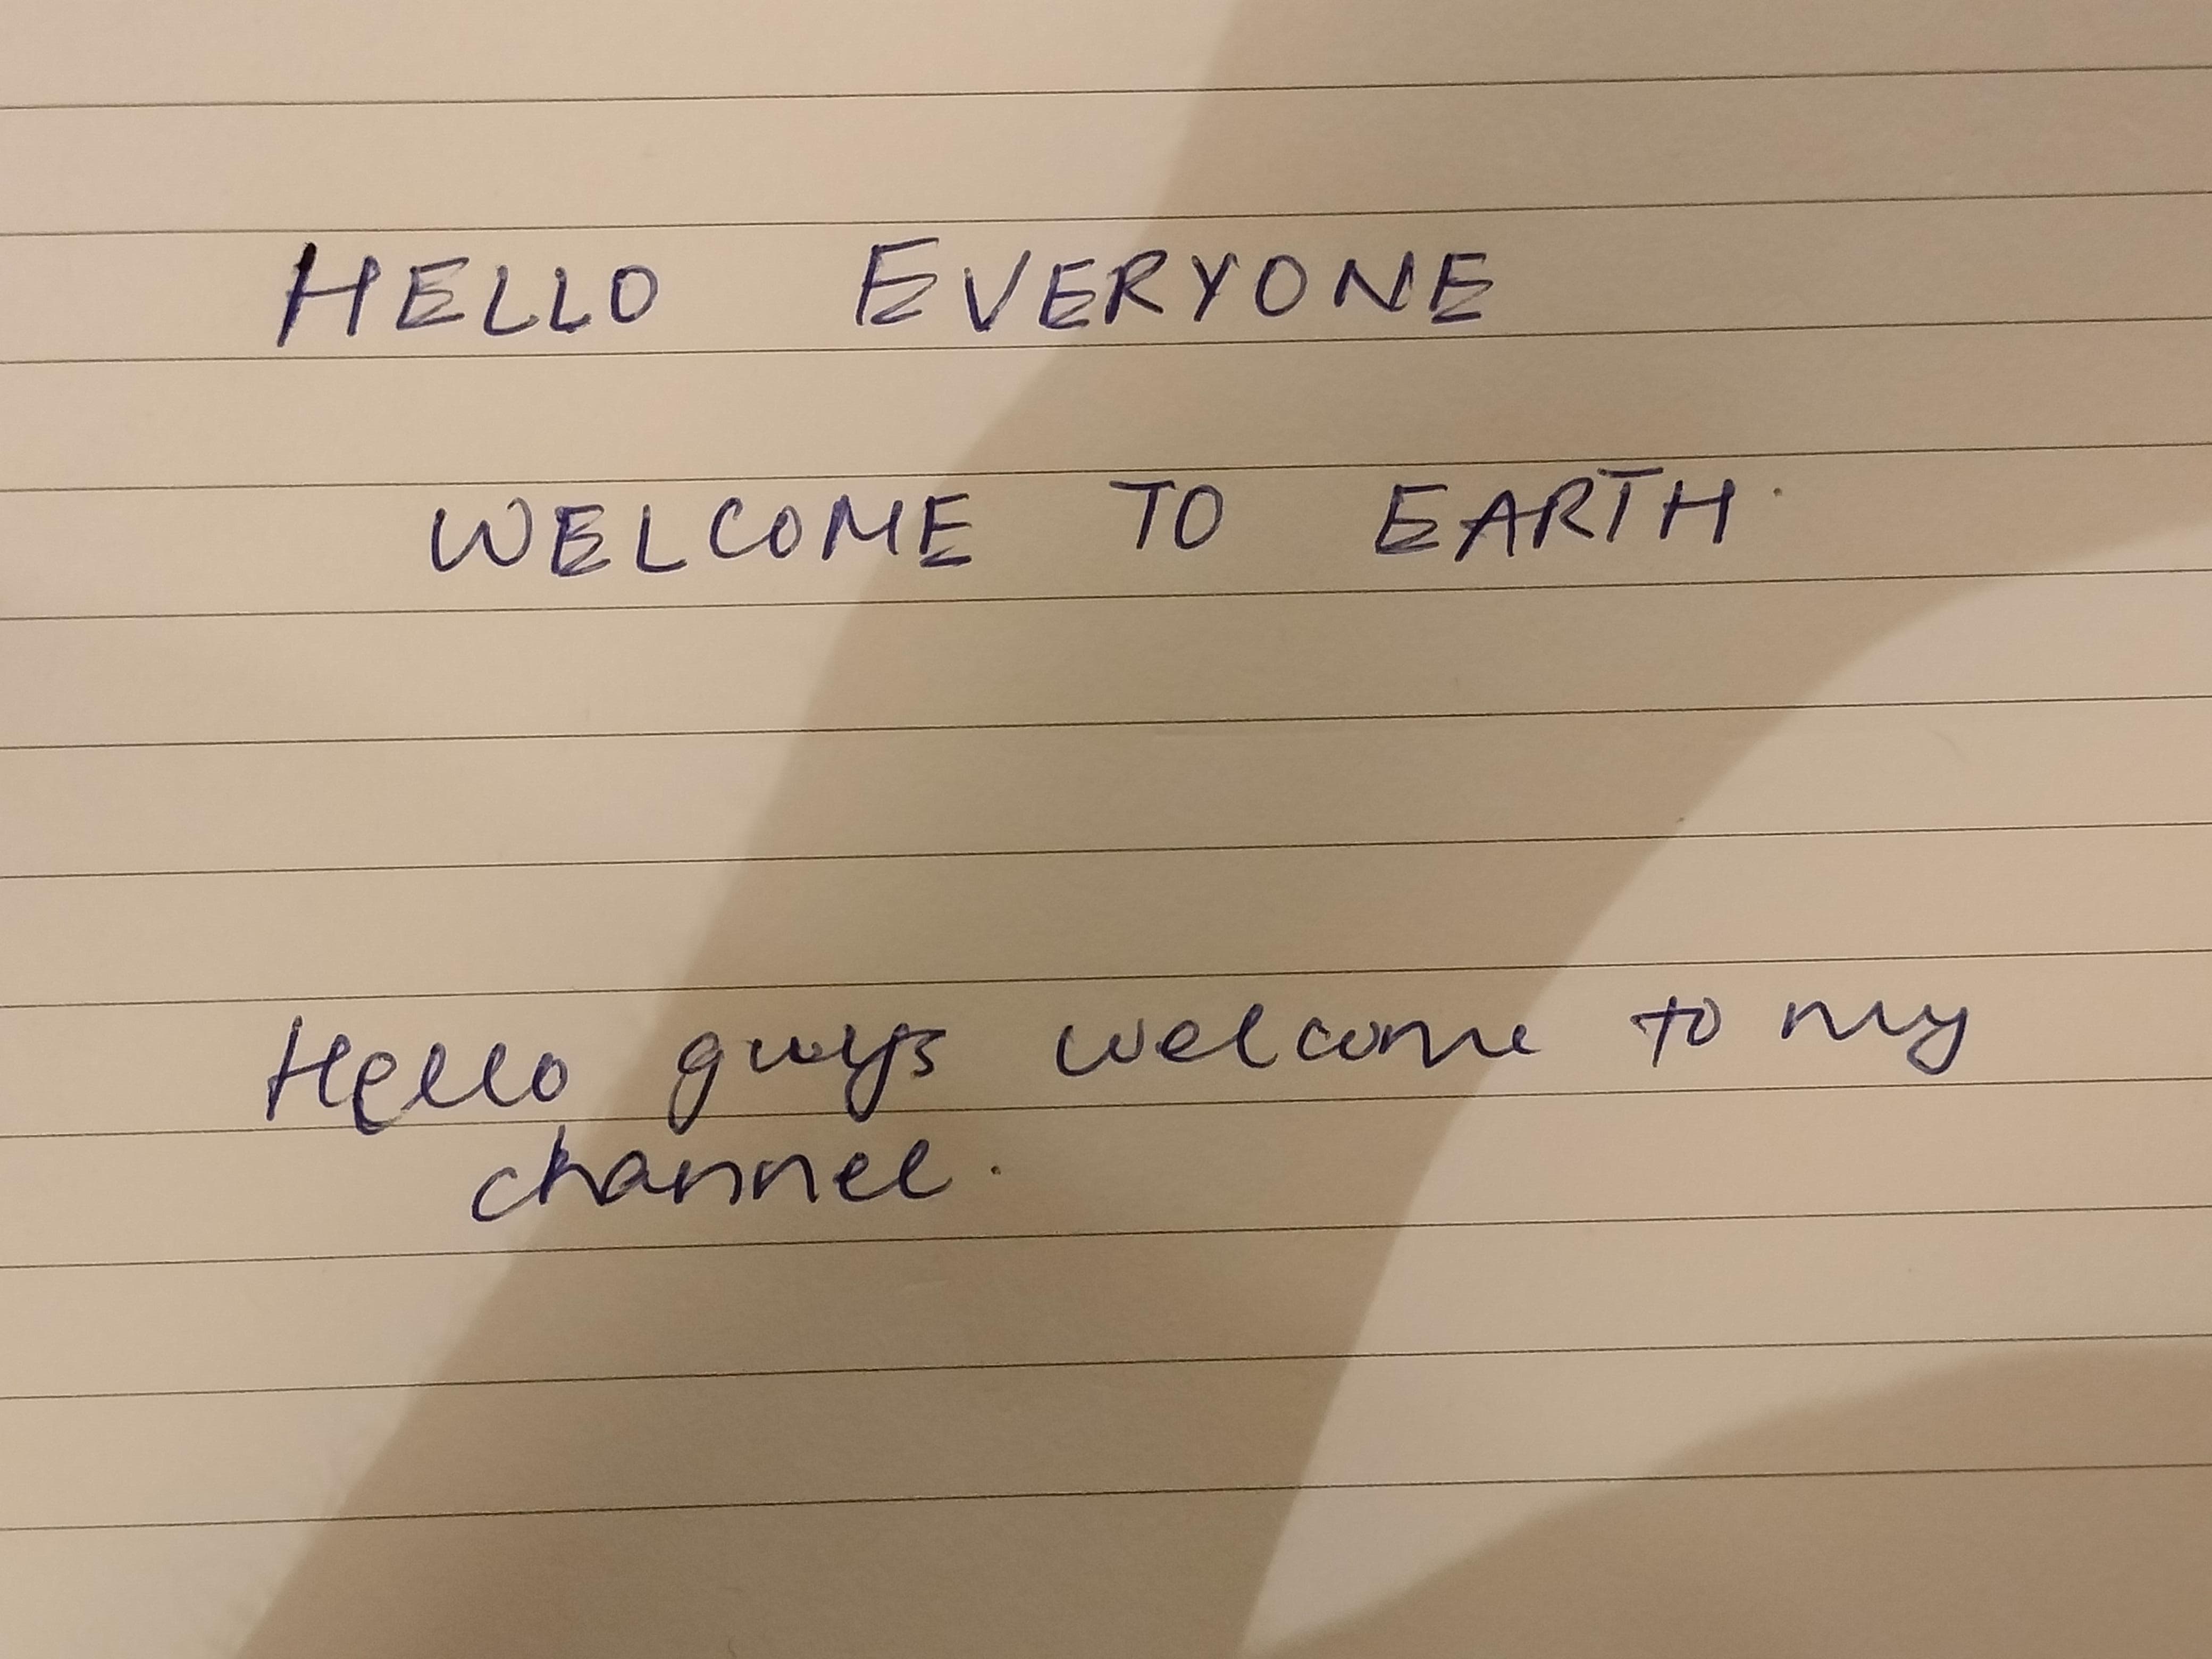 HELLO EVERYONE
WELCOME TO EARTH.
Hello guys welcome to my
channel.